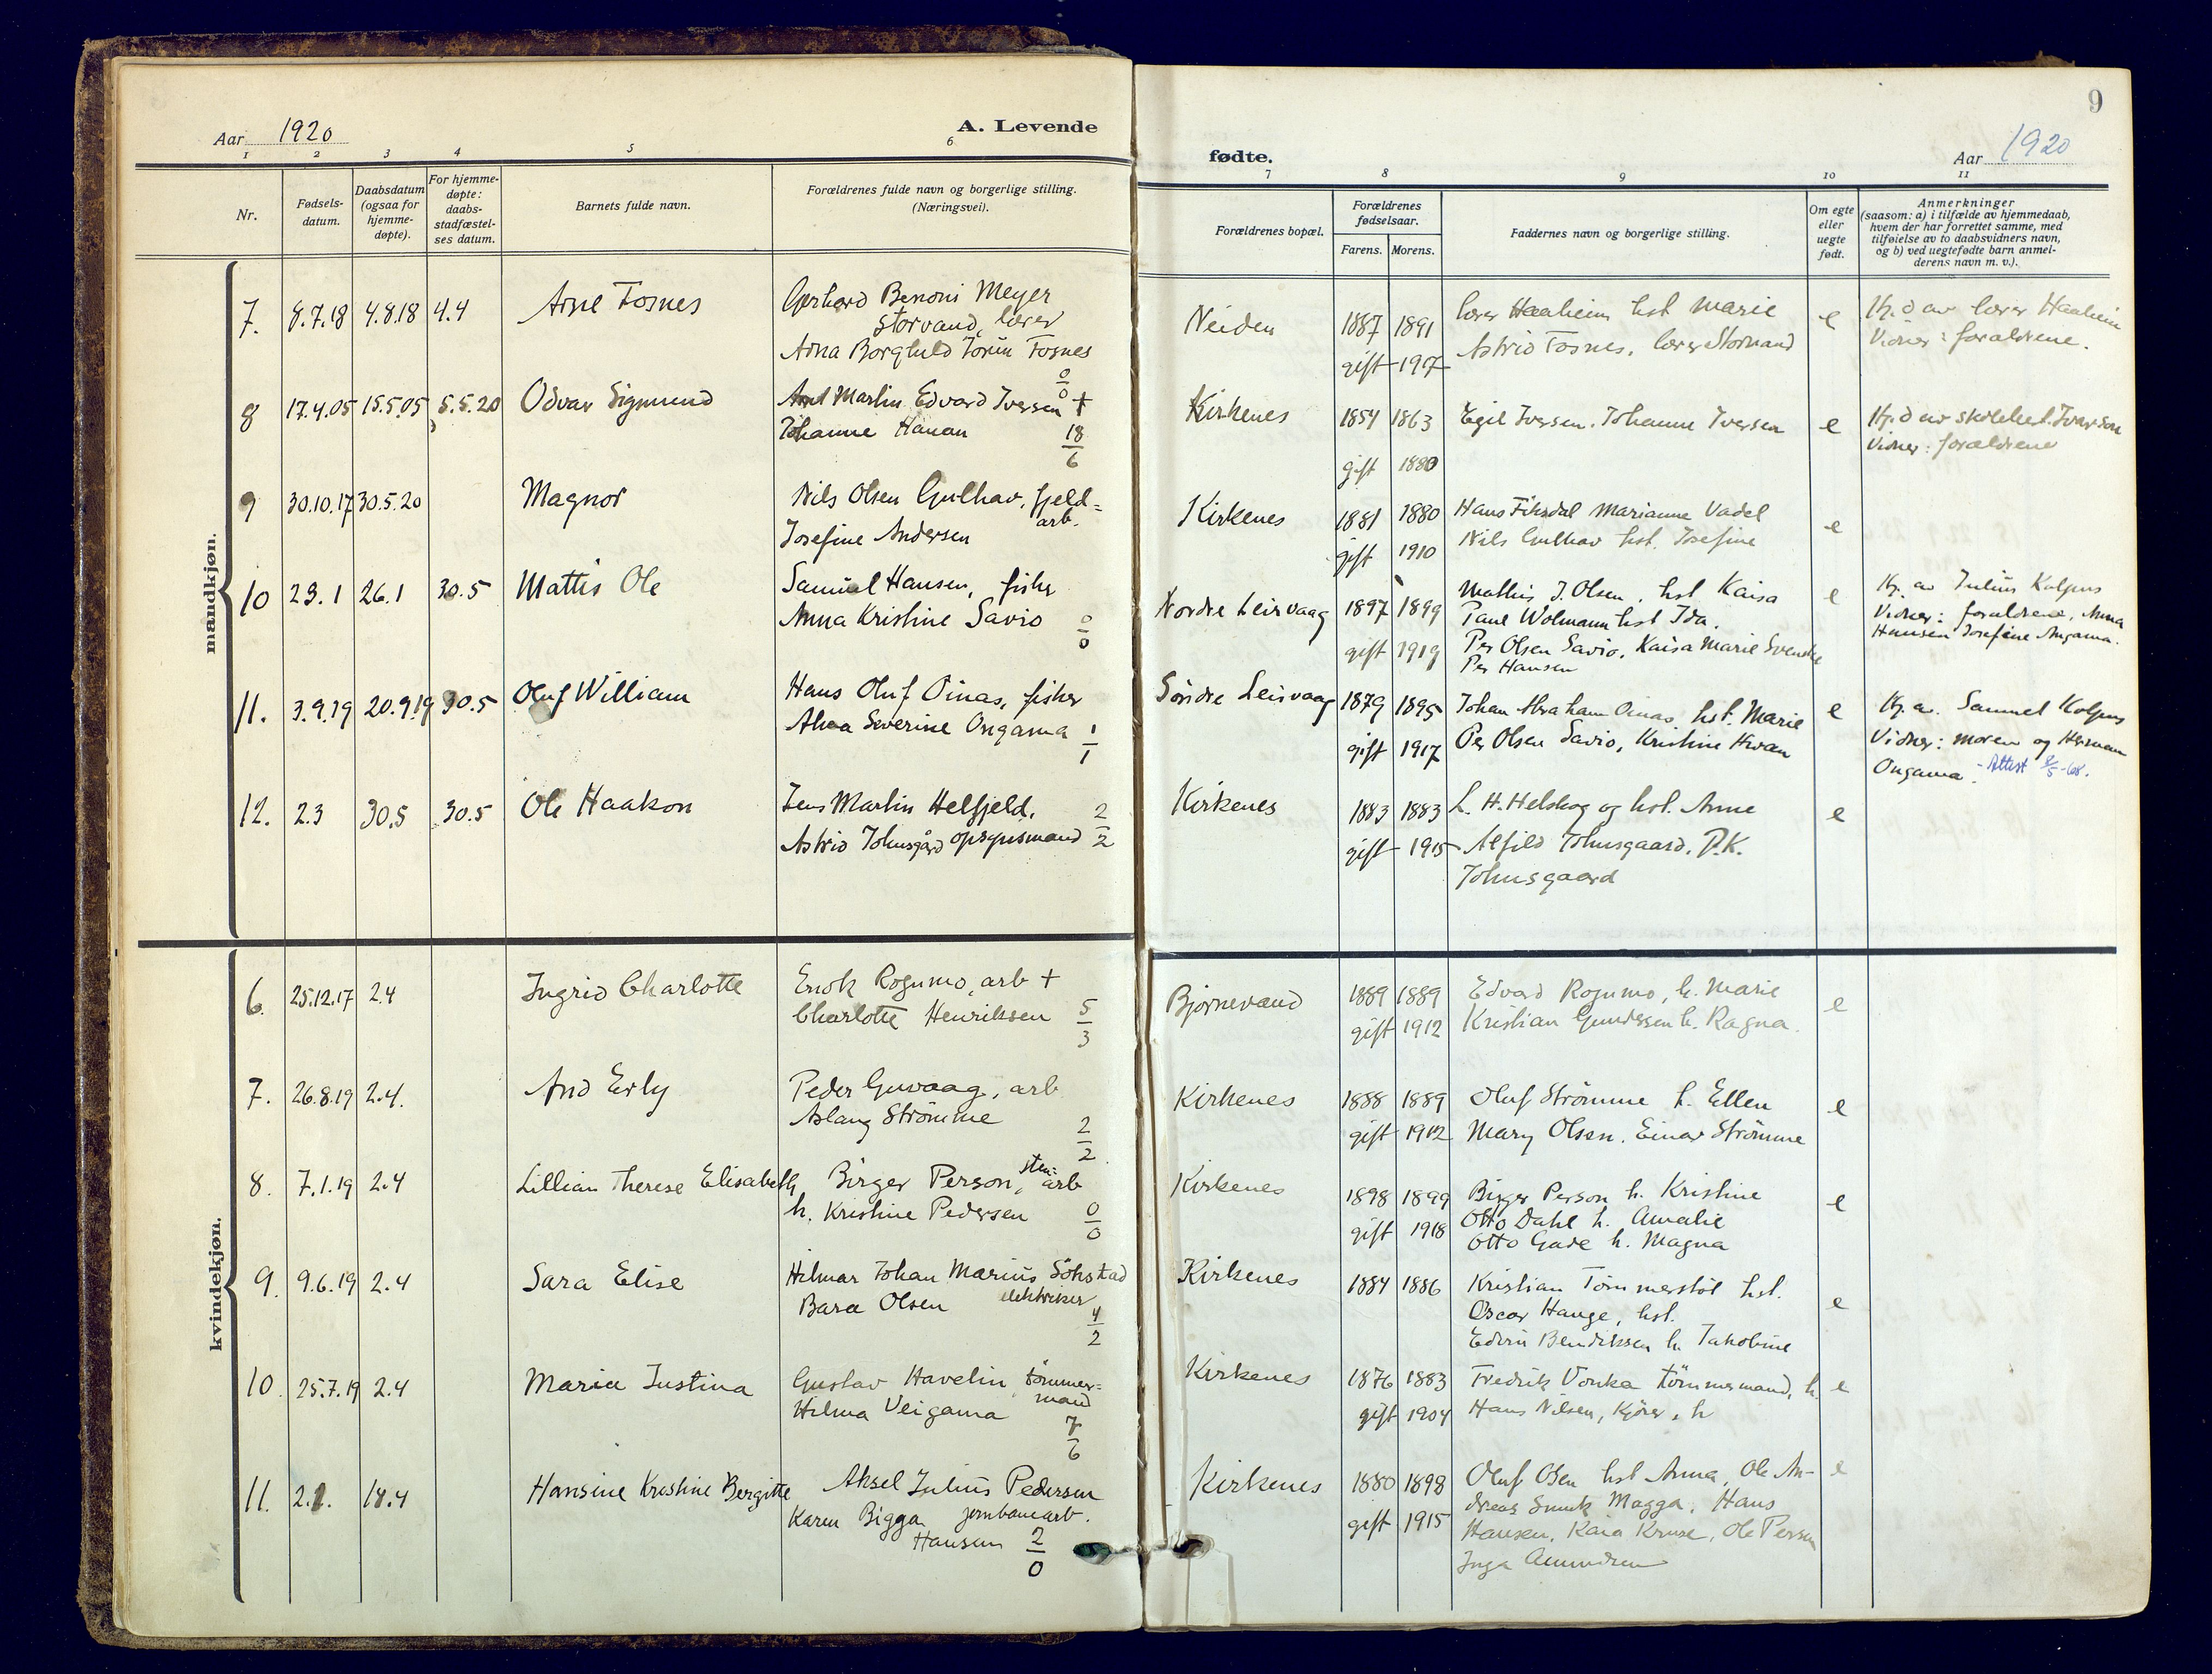 9
Aar 1920
A. Levende
fødte.
Aar 1920
1 2 3 4 5 6 7 8 9 10 11
Nr.
Fødsels-
datum.
Daabsdatum
(ogsaa for
hjemme-
døpte).
For hjemme-
døpte:
daabs-
stadfæstel-
ses datum.
Barnets fulde navn.
Forældrenes fulde navn og borgerlige stilling.
(Næringsvei).
Forældrenes bopæl.
Forældrenes
fødselsaar.
Farens. Morens.
Faddernes navn og borgerlige stilling.
Om egte
eller
uegte
født.
Anmerkninger
(saasom: a) i tilfælde av hjemmedaab,
hvem der har forrettet samme, med
tilføielse av to daabsvidners navn,
og b) ved uegtefødte barn anmel-
derens navn m. v.).
mandkjøn.
7. 8.7.18 4.8.18 4.4 Arne Fosnes
Gerhard Benoni Meyer
Storvand, lærer
Adna Borghild Jorun Fosnes
0/0
Neiden 1887 1891
gift 1917
lærer Haaheim hst Marie
Astrid Fosnes, lærer Storvand
e
Hj.d av lærer Haaheim
Vidner: forældrene.
8 17.4.05 15.5.05 5.5.20 Odvar Sigmund
Martin Edvard Iversen +
Johanne Hanan 18/6
Kirkenes 1854 1863
gift 1880
Egil Iversen. Johanne Iversen
e
Hj.d av skolebest. Ivarson
Vidner: forældrene
9 30.10.17 30.5.20 Magnor
Nils Olsen Gulhav, fjeld=
arb.
Josefine Andersen
Kirkenes 1881 1880
gift 1910
Hans Fiksdal Marianne Vadel
Nils Gulhav hst. Josefine
e
10 23.1 26.1 30.5 Mattis Ole
Samuel Hansen, fisker
Anna Kristine Savio 0/0
Nordre Leirvaag 1897 1899
gift 1919
Mathis J. Olsen, hst Kaisa
Paul Wolmann hst Ida.
Per Olsen Savio, Kaisa Marie Svenske
Per Hansen
e
Hj. av Julius Kalpus
Vidner: forældrene, Anna
Hansen Josefine Angama.
11. 3.9.19 20.9.19 30.5 Oluf William
Hans Oluf Oinas, fisker
Severine Ongama 1/1
Søndre Leirvaag 1879 1895
gift 1917
Johan Abraham Oinas, hst. Marie
Per Olsen Savio, Kristine
e
Hj. av. Samuel Kalpus
Vidner: moren og Herman
Ongama. - Attest 8/5-68.
12. 2.3 30.5 30.5 Ole Haakon
Jens Martin Helfjeld, 2/2
Astrid Johnsgård opsynsmand
Kirkenes 1883 1883
gift 1915
L. H. Helskog og hst. Anne
Alfild Johnsgaard, P.K.
Johnsgaard
e
kvindekjøn.
6. 25.12.17 2.4 Ingrid Charlotte
Enok Rogumo, arb +
Charlotte Henriksen 5/3
Bjørnevand 1889 1889
gift 1912
Edvard Rogumo, h. Marie
Kristian Gundersen h. Ragna.
e
7. 26.8.19 2.4. Aud Erly
Peder Guvaag, arb
Aslaug Strömme 2/2
Kirkenes 1888 1889
gift 1912
Oluf Strömme h. Ellen
Mary Olsen. Einar Strömme
e
8. 7.1.19 2.4 Lillian Therese Elisabeth
Birger Person, sten=arb
h. Kristine Pedersen 0/0
Kirkenes 1898 1899
gift 1918
Birger Person h. Kristine
Otto Dahl h. Amalie
Otto Gade h. Magna
e
9. 9.6.19 2.4 Sara Elise
Hilmar Johan Marius Söhstad
elektriker
Bara Olsen 4/2
Kirkenes 1884 1886
Kristian Tömmerstöl hst.
Oscar Hauge, hst.
Edvin Bendiksen h. Jakobine
e
10. 25.7.19 2.4 Maria Justina
Gustav Havelin tömmer=
mand
Hilma Veigama 7/6
Kirkenes 1876 1883
gift 1904
Fredrik Vonka tömmermand, h.
Hans Nilsen, kjörer, h
e
11. 2.1. 18.4 Hansine Kristine Bergitte
Aksel Julius Pedersen
jernbanearb.
Karen Bigga
Hansen 2/0
Kirkenes 1880 1898
gift 1915
Oluf Olsen hst Anna, Ole An-
dreas Smuk Magga, Hans
Hansen, Kaia Kruse, Ole Person
Inga Amundsen
e